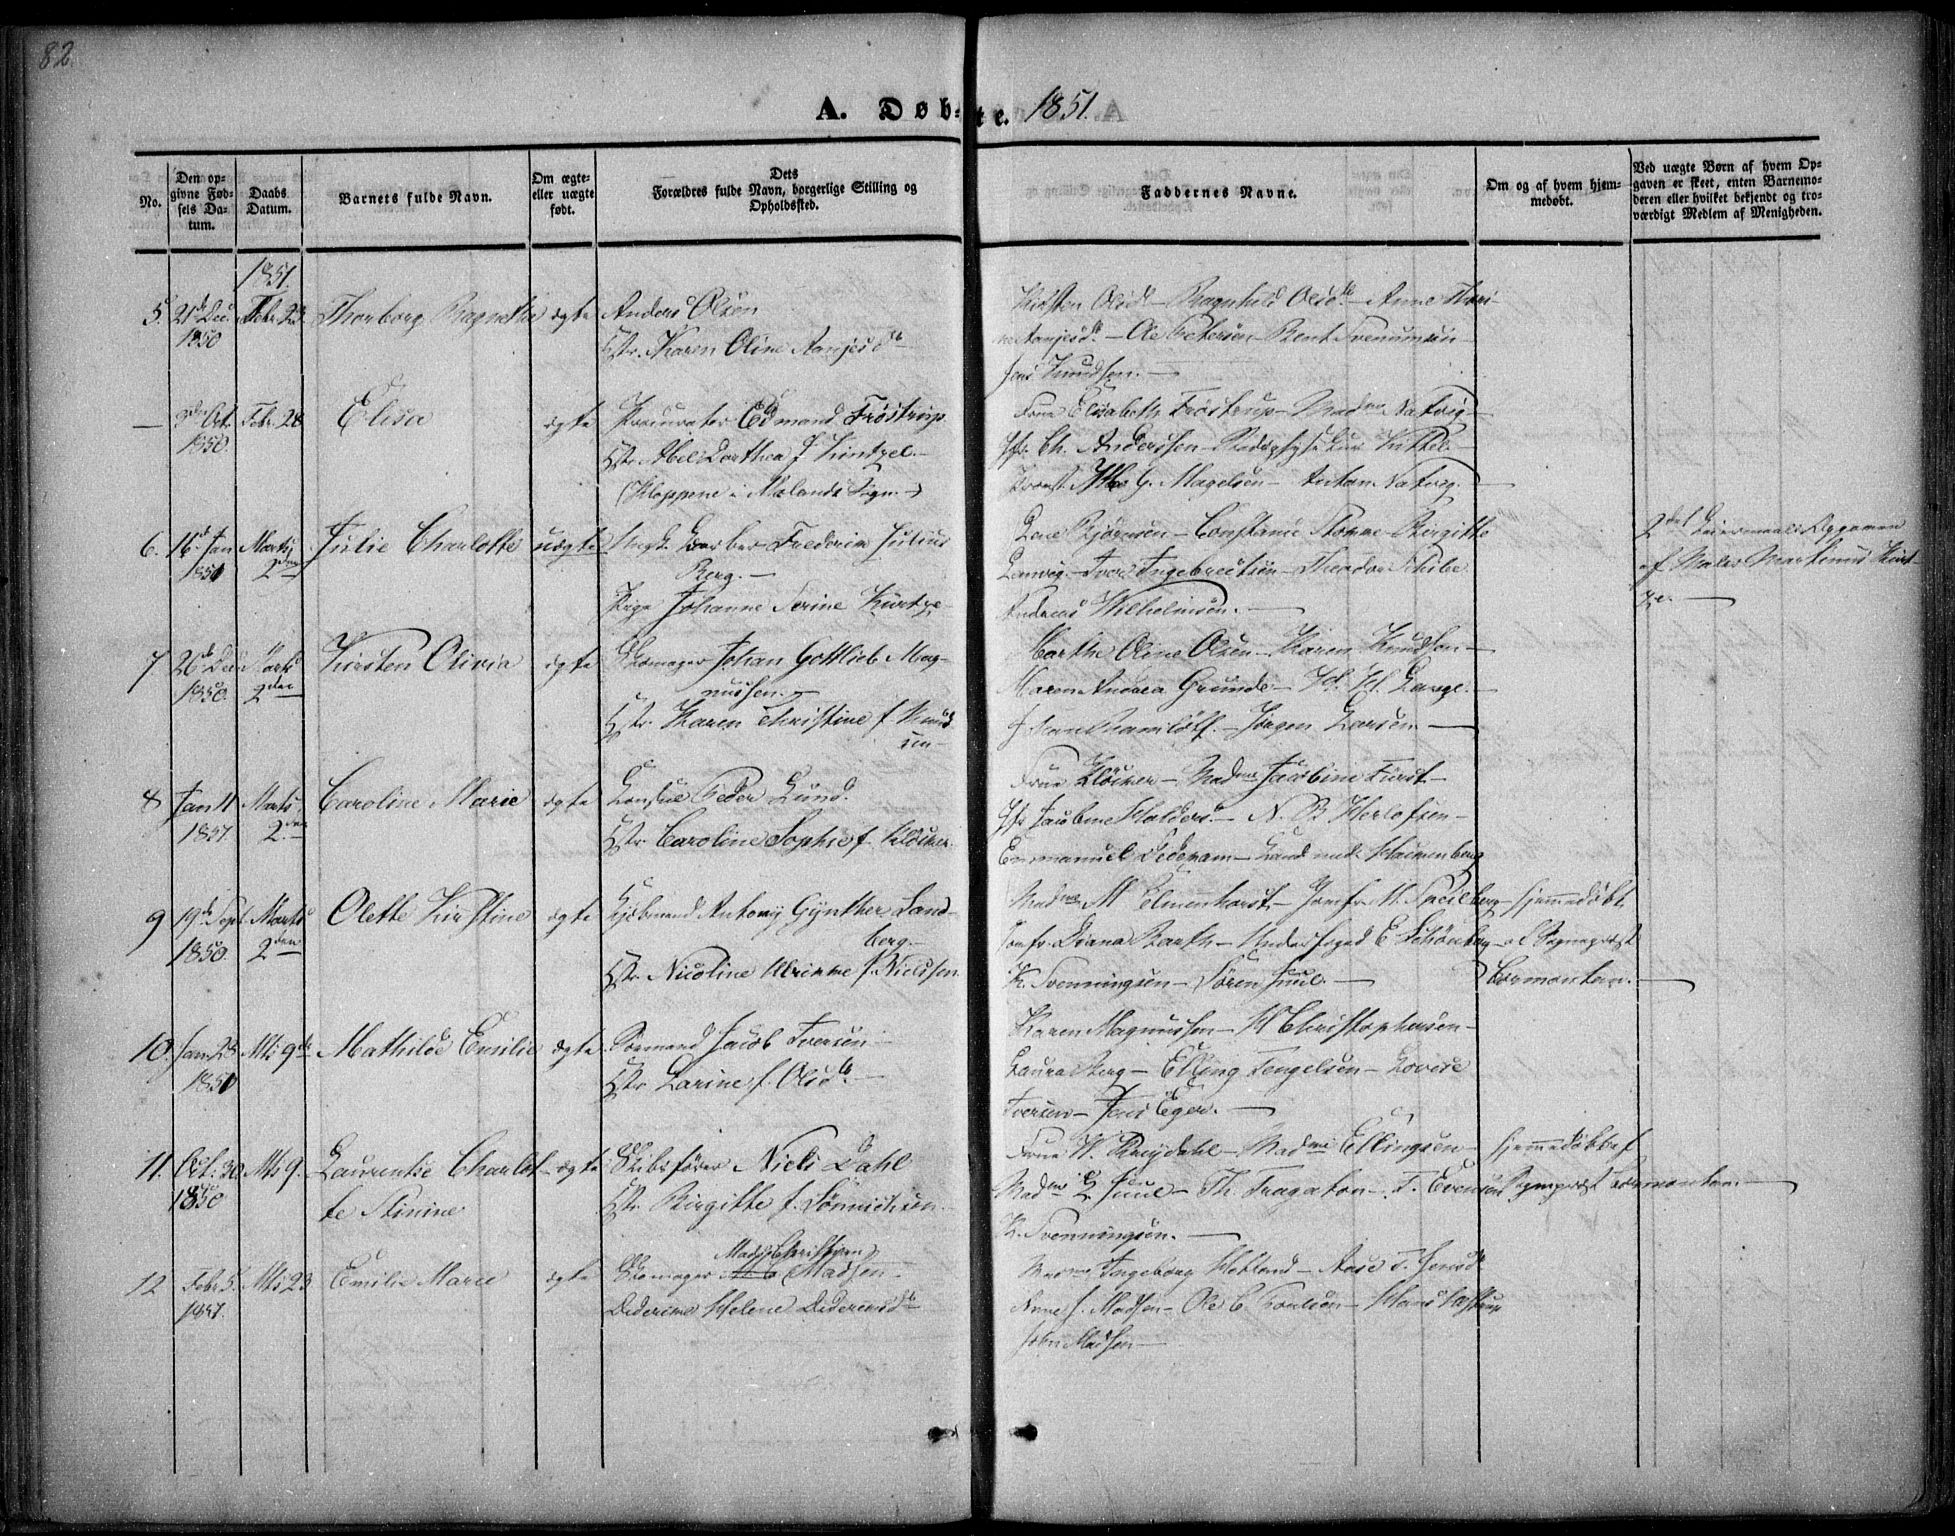 82.
A. Døb-te. 1851.
No.
Den op-
givne Fød-
sels Da-
tum.
Daabs
Datum.
Barnets fulde Navn.
Om ægte-
eller uægte
født.
Dets
Forældres fulde Navn, borgerlige Stilling og
Opholdssted.
Faddernes Navne.
Om og af hvem hjem-
medøbt.
Ved uægte Børn af hvem Op-
gaven er skeet, enten Barnemo-
deren eller hvilket bekjendt og tro-
værdigt Medlem af Menigheden.
1851.
5. 21de Dec. 1850 Febr. 23 Thorborg Ragnethe ægte
Anders Olsen
Hstr. Karen Oline Aanjesdtr
Kirsten Olsdtr – Ragnhild Olsdtr – Anne Thori-
ne Aanjesdtr – Ole Petersen – Bent Svenumsen –
Jens Knudsen. –
– 3den Oct. 1850. Febr. 28 Elisa ægte
Procurator Edmand Frøstrup
Hstr. Abel Dorthea f. Kintzel. –
(Kloppene i Molands Sogn. –)
Frue Elisabeth Frøstrup – Madme Natvig –
Jfr. Ch. Anderssen – Kittel –
Provst G. Magelsen – Anton Natvig. –
6. 16de Jan 1851 Marts 2den Julie Charlotte uægte
Ungk. Garber Frederik Julius
Berg. –
Pige Johanne Serine Kürtze
Lene Bjørnsen – Constance Thomme – Birgitte
Lanvig – Iver Ingebretsen – Theodor Thibe
Andreas Wilhelmsen. –
2det Leiermaal Opgaven
af Maler Martinus Kürt-
ze. –
7. 26de Dec. 1850. Marts 2den Kirsten Olivia ægte
Skomager Johan Gottlieb Mag-
nussen. –
Hstr. Karen Christine f. Knud-
sen –
Marthe Oline Olsen – Karen Knudsen –
Maren Andrea Grunde – Lange. –
Jørgen Larsen –
8 Jan 11 1851. Marts 2den Caroline Marie ægte
Consul Peder Lund.
Hstr. Caroline Sophie f. Kløcker.
Frue Kløcker – Madme Jacobine Fürst –
Jfr. Jacobine Halders. – N. B. Herlofsen –
Emanuel Dedekam – Cand. med.
9 19de Sept 1850. Marts 2den Olette Kirstine ægte
Kjøbmand Antony Gynther Sand-
berg. –
Hstr. Nicoline Ulrikke f. Nielssen
Madme M Elmenhorst – Jomfr. M. Speilberg –
Jomfr. Diana Barth – Underfoged E. Schönberg –
K. Svenningsen – Søren Juul. –
Hjemmedøbt
af Sognepræst
Cormontan. –
10. Jan. 28 1851 Mts 9de Mathilde Emilie ægte
Sømand Jacob Iversen
Hstr Larine f. Olsdtr. –
Karen Magnussen – H Christophersen –
Laura Berg – Elling Tengelsen – Lovise
Iversen – Jens Eger. –
11. Oct. 30 1850 Mts 9. Laurentze Charlot-
te Stinine ægte
Skibsfører Niels Dahl
Hstr. Birgitte f. Sønnichsen. –
Frue W. Reydahl – Madme Ellingsen –
Madme L Juul – Th. Fragaton – T. Evensen
K. Svenningsen. –
Hjemmedøbt af
Sognepræst Cormontan. –
12 Febr. 5. 1851. Mts 23 Emilie Marie ægte
Mads Christian
Skomager M C Madsen
Dederikke Helene Dedericksdtr
Madme Ingeborg Hetland – Aase T. Jensdtr
Anne J. Madsen – Ole C. Poulsen – Hans Kastrup
John Madsen –